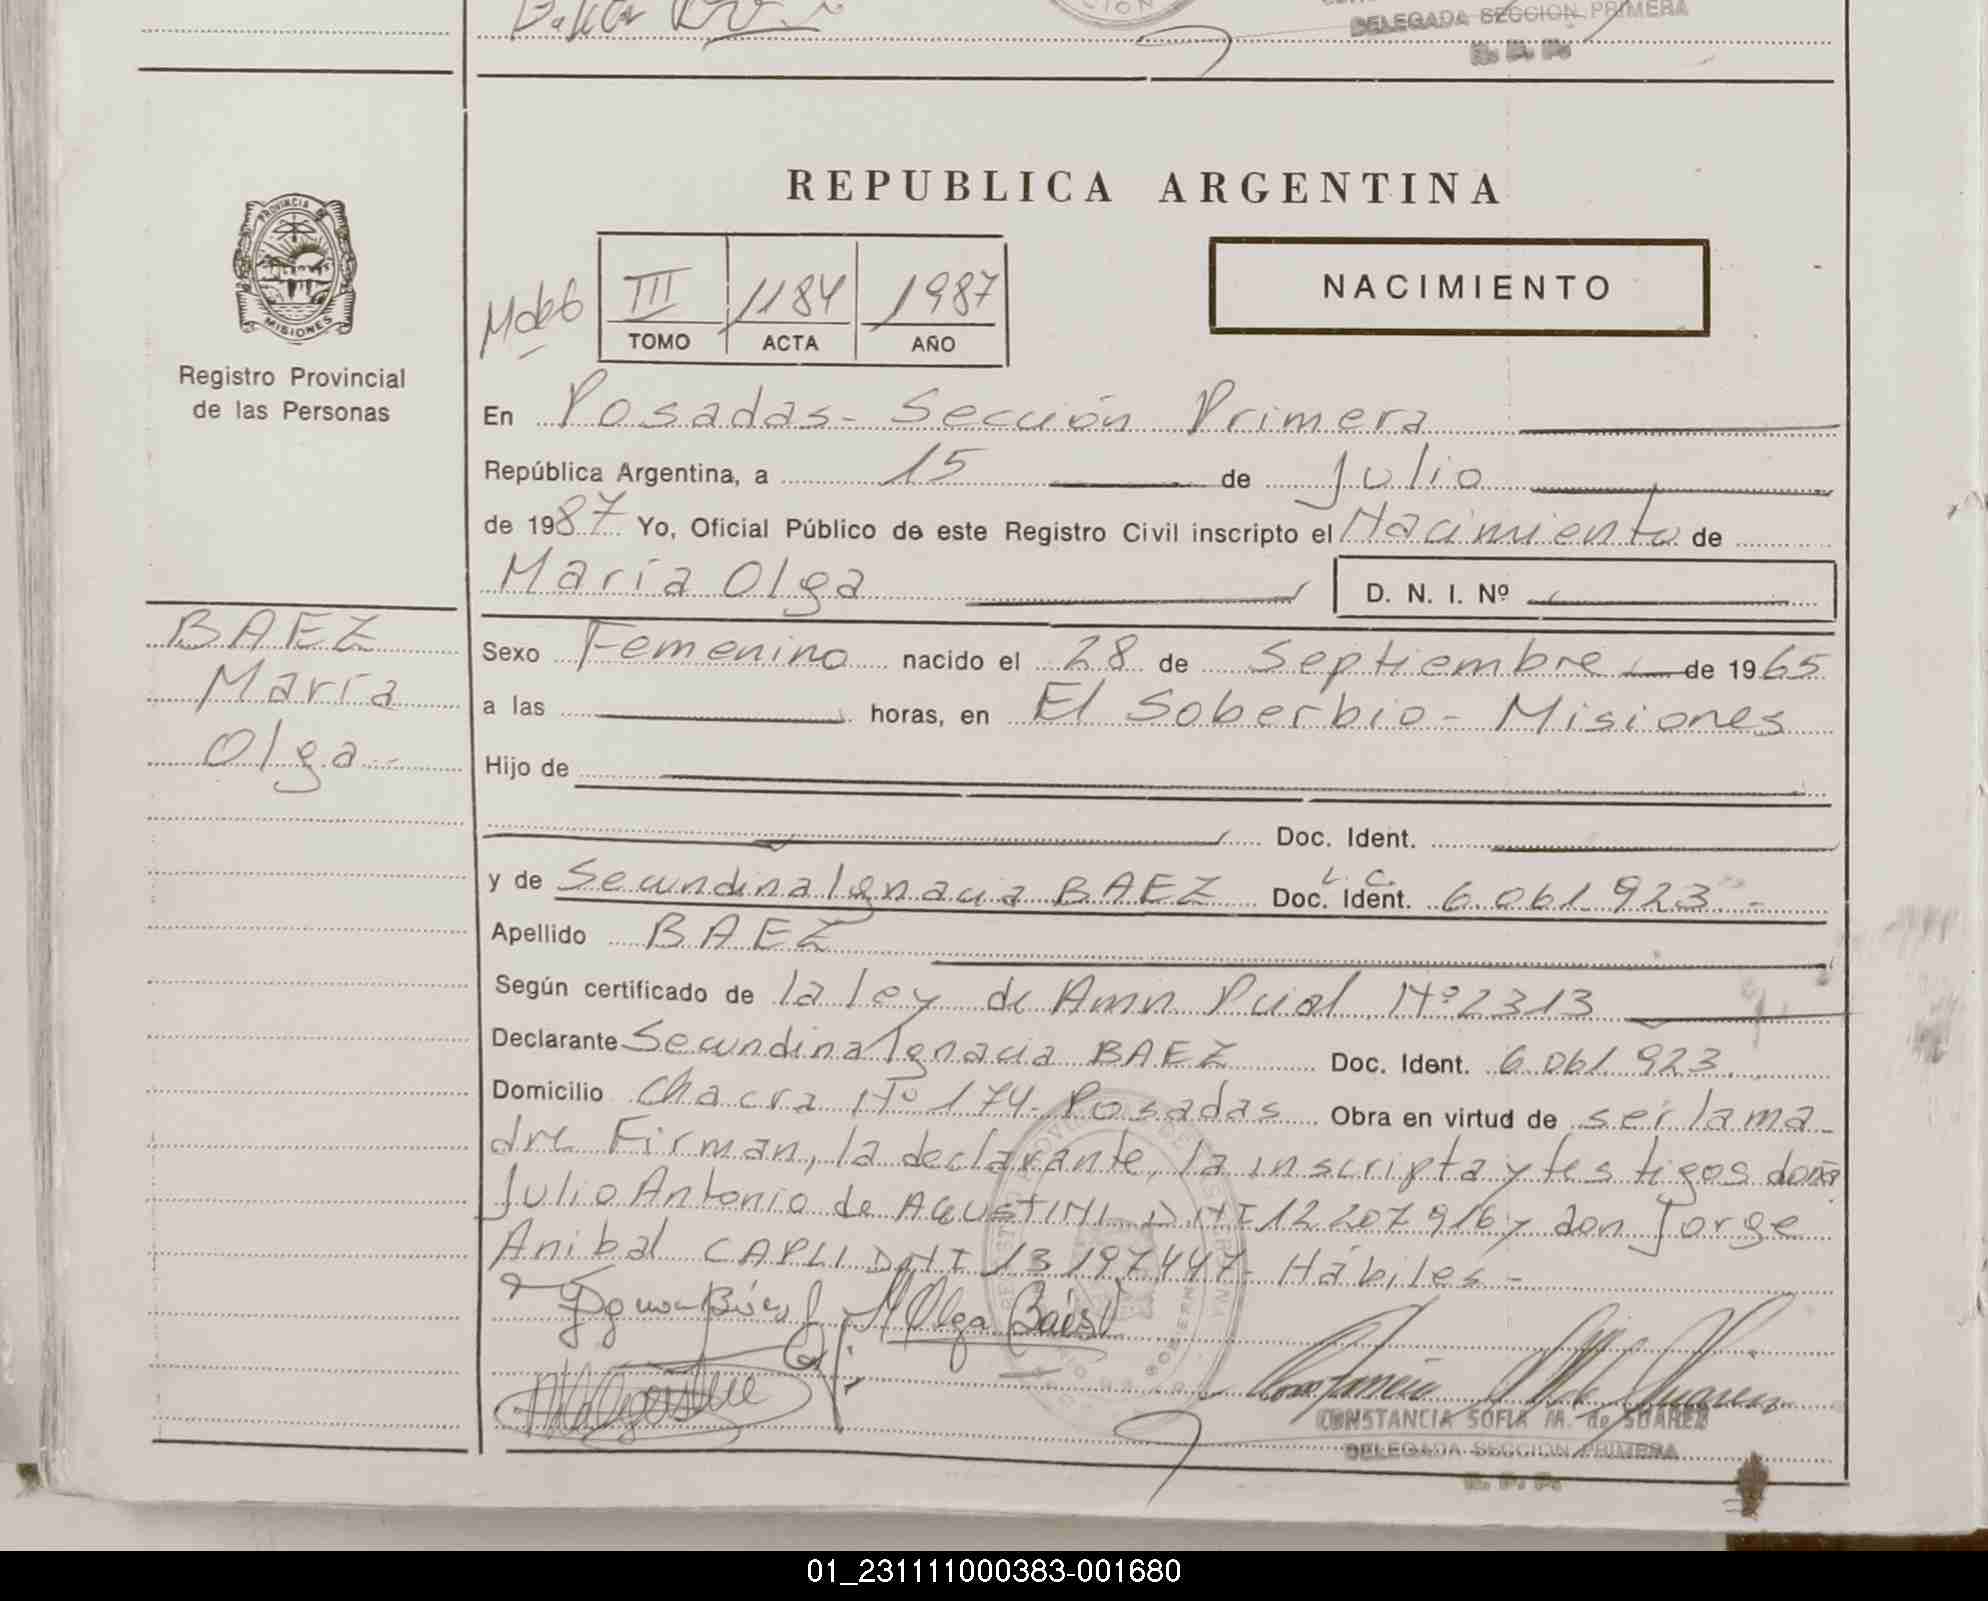 DELEGADA SECCION PRIMERA
R. P. P.
REPUBLICA ARGENTINA
PROVINCIA DE
MISIONES
Registro Provincial
de las Personas
III 1184 1987
TOMO ACTA AÑO
NACIMIENTO
En Posadas - Sección Primera
República Argentina, a 15 de Julio
de 1987 Yo, Oficial Público de este Registro Civil inscripto el Nacimiento de
María Olga D. N. I. Nº
BAEZ
María
Olga
Sexo Femenino nacido el 28 de Septiembre de 1965
a las horas, en El Soberbio - Misiones
Hijo de
Doc. Ident.
y de Secundina Ignacia BAEZ L. C. Doc. Ident. 6.061.923 -
Apellido BAEZ
Según certificado de la ley de Amn Pcial Nº 2313
Declarante Secundina Ignacia BAEZ Doc. Ident. 6.061.923
Domicilio Chacra Nº 174 - Posadas Obra en virtud de ser la ma
dre Firman, la declarante, la inscripta y testigos don
Julio Antonio de AGUSTINI DNI 12 207 916 y don Jorge
Anibal CAPLI DNI 13 197 447 - Hábiles -
Olga Baes
CONSTANCIA SOFIA M. de SUAREZ
DELEGADA SECCION PRIMERA
R. P. P.
01_231111000383-001680